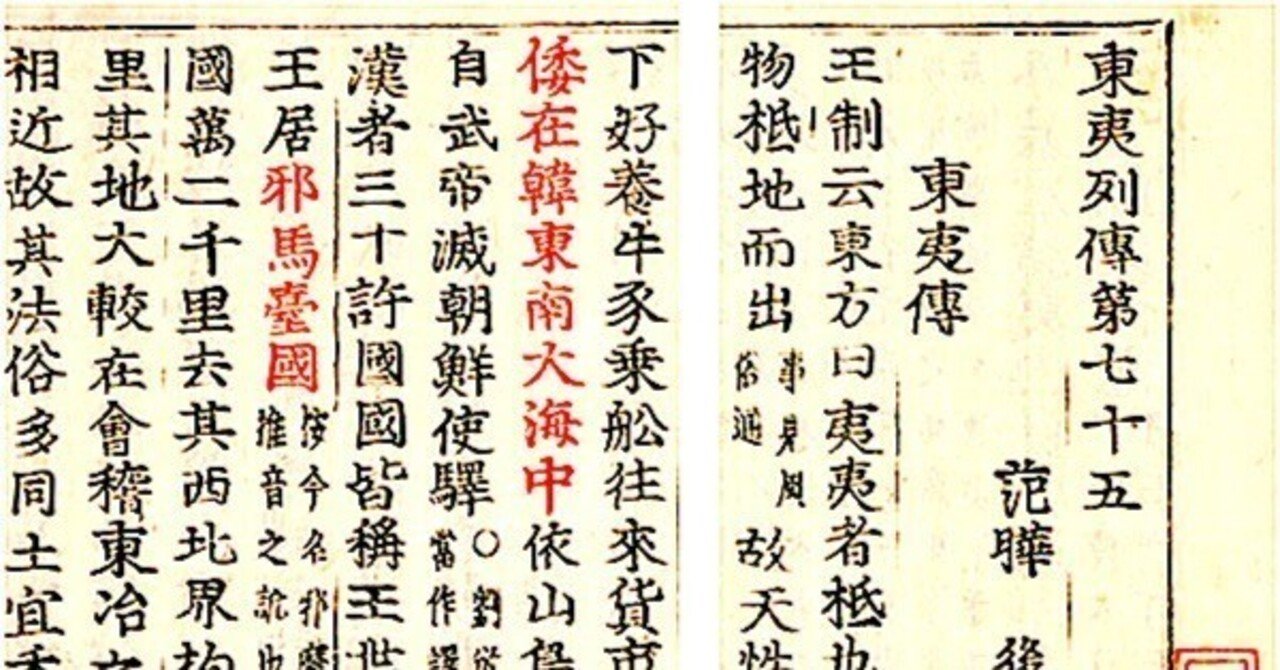 東夷列傳第七十五
范曄
東夷傳
王制云東方曰夷夷者柢也
物柢地而出事見風俗通故天性
下好養牛豕乗舩往來貨市
倭在韓東南大海中依山島
自武帝滅朝鮮使驛○劉攽當作譯
漢者三十許國國皆稱王世
王居邪馬臺國按今名邪摩推音之訛也
國萬二千里去其西北界拘
里其地大較在會稽東冶之
相近故其法俗多同土宜禾